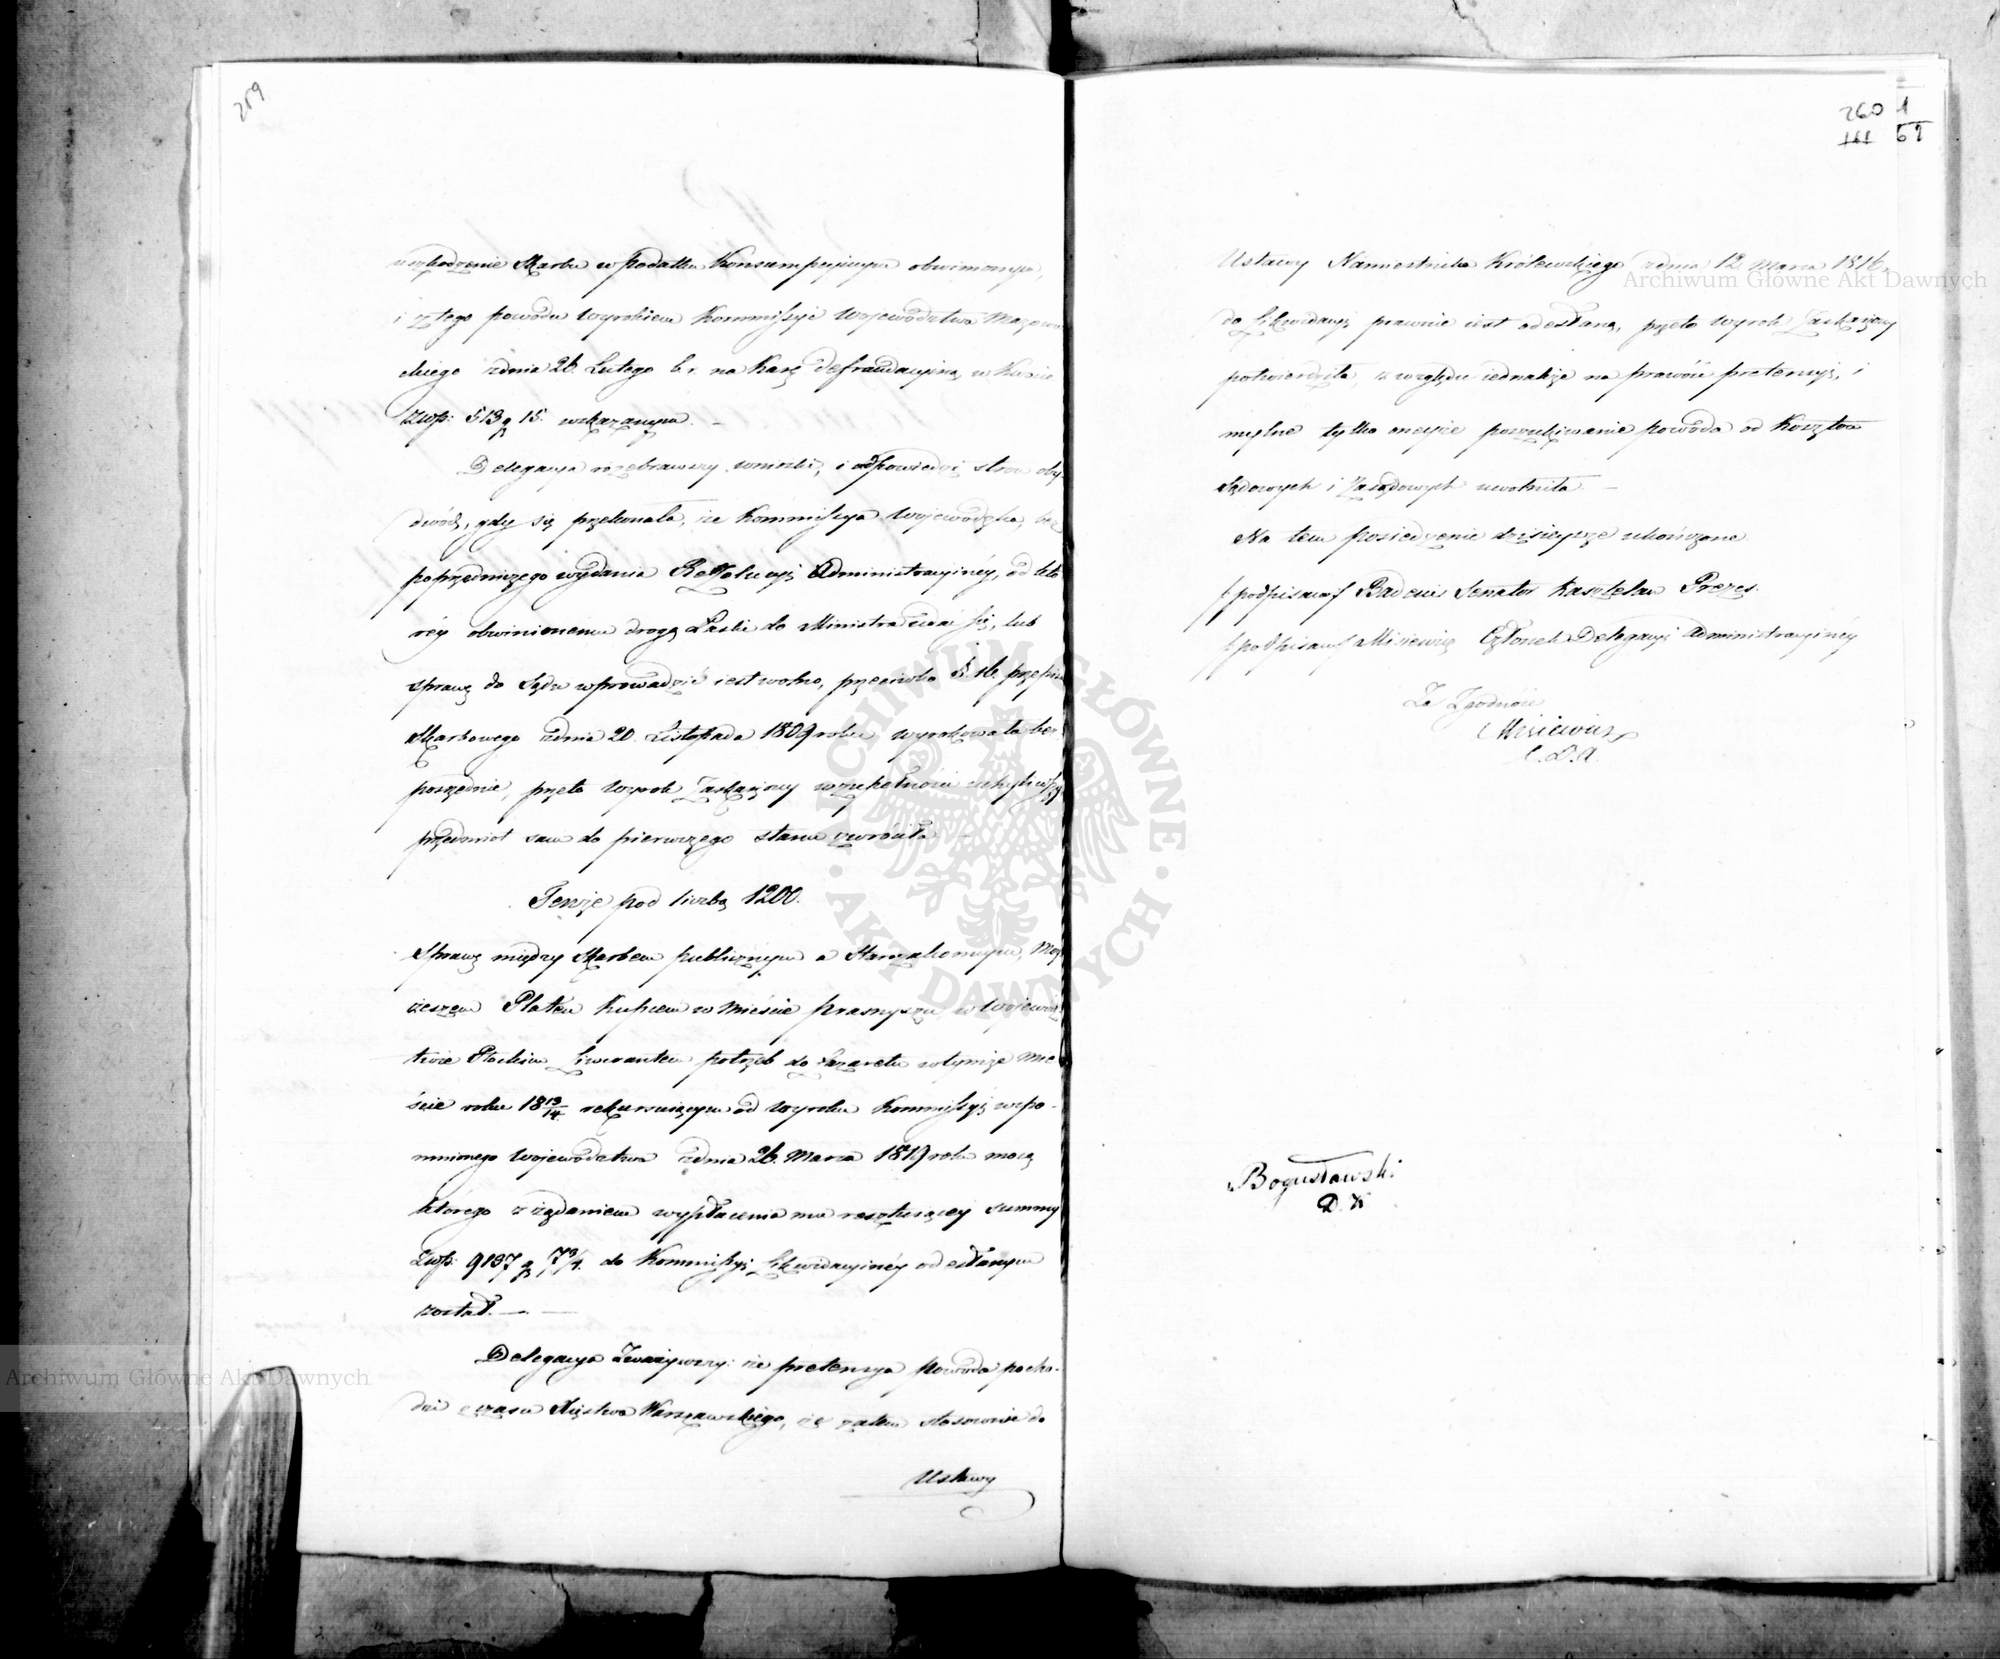 259
uszkodzenie Skarbu w podatku Konsumpcyjnym obwinionym,
i z tego powodu wyrokiem Kommissyi Województwa Mazowie
ckiego z dnia 26. Lutego b. r. na karę defraudacyiną w kwocie
Złłp: 513 g 15. wskazanym. –
Delegacya rozebrawszy wnioski, i odpowiedzi stron oby-
dwóch, gdy się przekonała, że Kommissya Wojewódzka, bez
poprzedniczego wydania Rezolucyi Administracyinéy, od któ
réy obwinionemu drogą Łaski do Ministra udać się, lub
sprawę do Sądu wprowadzić iest wolno, przeciwko §. 16. przepisu
Skarbowego z dnia 20. Listopada 1809 roku wyrokowała bez
pośrednie, przeto Wyrok Zaskarżony w zupełności uchyliwszy
przedmiot sam do pierwszego stanu zwróciła –
Tenże pod liczbą 1200.
Sprawę między Skarbem publicznym a Starozakonnym, Moy
żeszem Kupcem w Mieście Prasnyszu w Wojewódz
twie Płockim Liwerantem potrzeb do Lazaretu w tymże Mie
ście roku 18 13/14. rekursuiącym od Wyroku Kommissyi wspo-
mnionego Województwa z dnia 26. Marca 1819 roku mocą
którego z żądaniem wypłacenia mu resztuiącey summy
Złłp: 9137 g 7 3/4. do Kommissyi Likwidacyinéy odesłanym
został. – –
Delegacya Zważywszy: że pretensya Powoda pocho-
dzi z czasu Xięstwa Warszawskiego, że zatem stosownie do
Ustawy
260 1
111 62
Ustawy Namiestnika Królewskiego z dnia 12. Marca 1816,
do Likwidacyi prawnie iest odesłaną, przeto Wyrok Zaskarżony
potwierdziła, z względu iednakże na prawość pretensyi, i
mylne tylko oneyże poszukiwanie powoda od Kosztów
Sądowych i Zasądowych uwolniła –
Na tem posiedzenie dzisieysze ukończone
(podpisano) Badeni Senator Kasztelan Prezes.
(podpisano) Misiewicz Członek Delegacyi Administracyinéy
Za Zgodność
Misiewicz
C. D. A.
Bogusławski
D. K
Archiwum Główne Akt Dawnych
Archiwum Główne Akt Dawnych
ARCHIWUM GŁÓWNE · AKT DAWNYCH ·